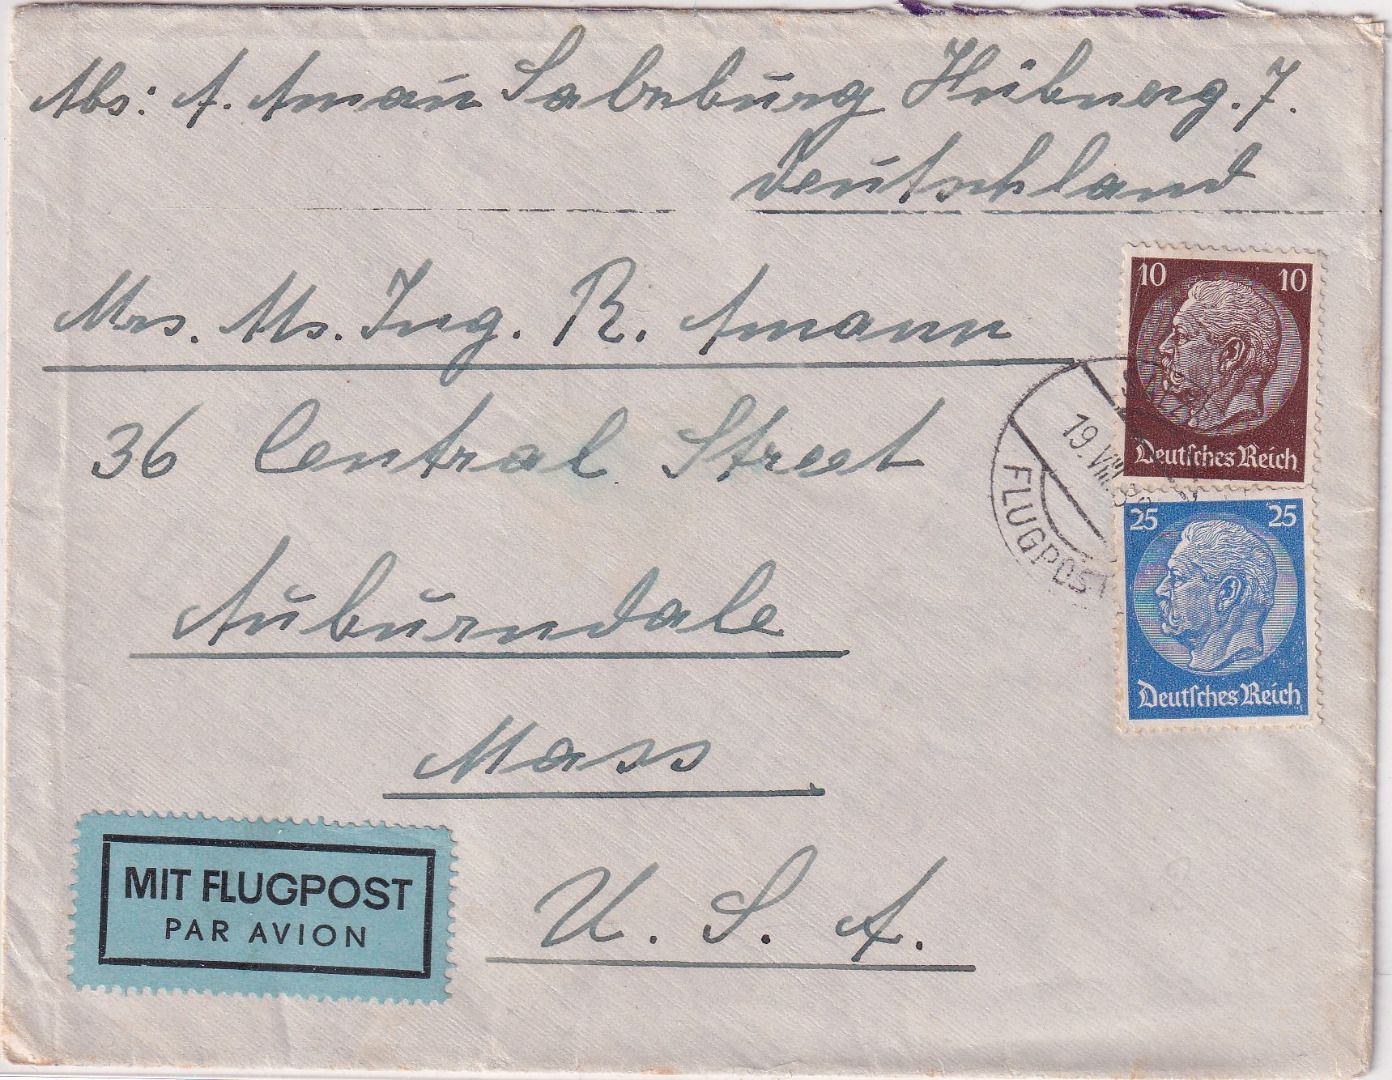 Abs: A. Amann Salzburg Hübnerg. 7.
Deutschland
Mrs. Ms. Ing. R. Amann
36 Central Street
Auburndale
Mass
U. S. A.
10 10
Deutsches Reich
19. VIII.
FLUGPOST
25 25
Deutsches Reich
MIT FLUGPOST
PAR AVION